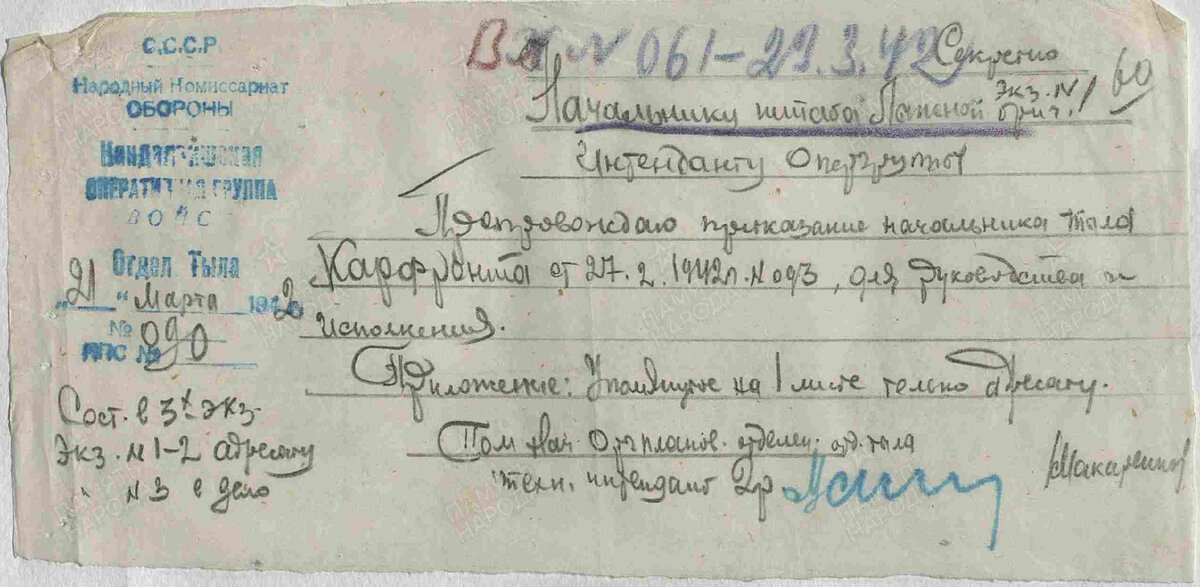 С.С.С.Р
Народный Комиссариат
ОБОРОНЫ
Кандалакшская
ОПЕРАТИВНАЯ ГРУППА
ВОЙС
Отдел Тыла
"21" Марта 1942
№ 090
ППС №
Сост. в 3х экз.
Экз. № 1-2 адресату
" № 3 в дело
Вх N 061-29.3.42
Секретно
Экз. N 1
60
Начальнику штаба Лыжной бриг.
Интенданту Опергруппы
Препровождаю приказание начальника тыла
Карфронта от 27.2.1942г. N 093, для руководства и
исполнения.
Приложение: Упомянутое на 1 листе только адресату.
Пом нач. Отд планов. отделен. отд. тыла
техн. интендант 2р